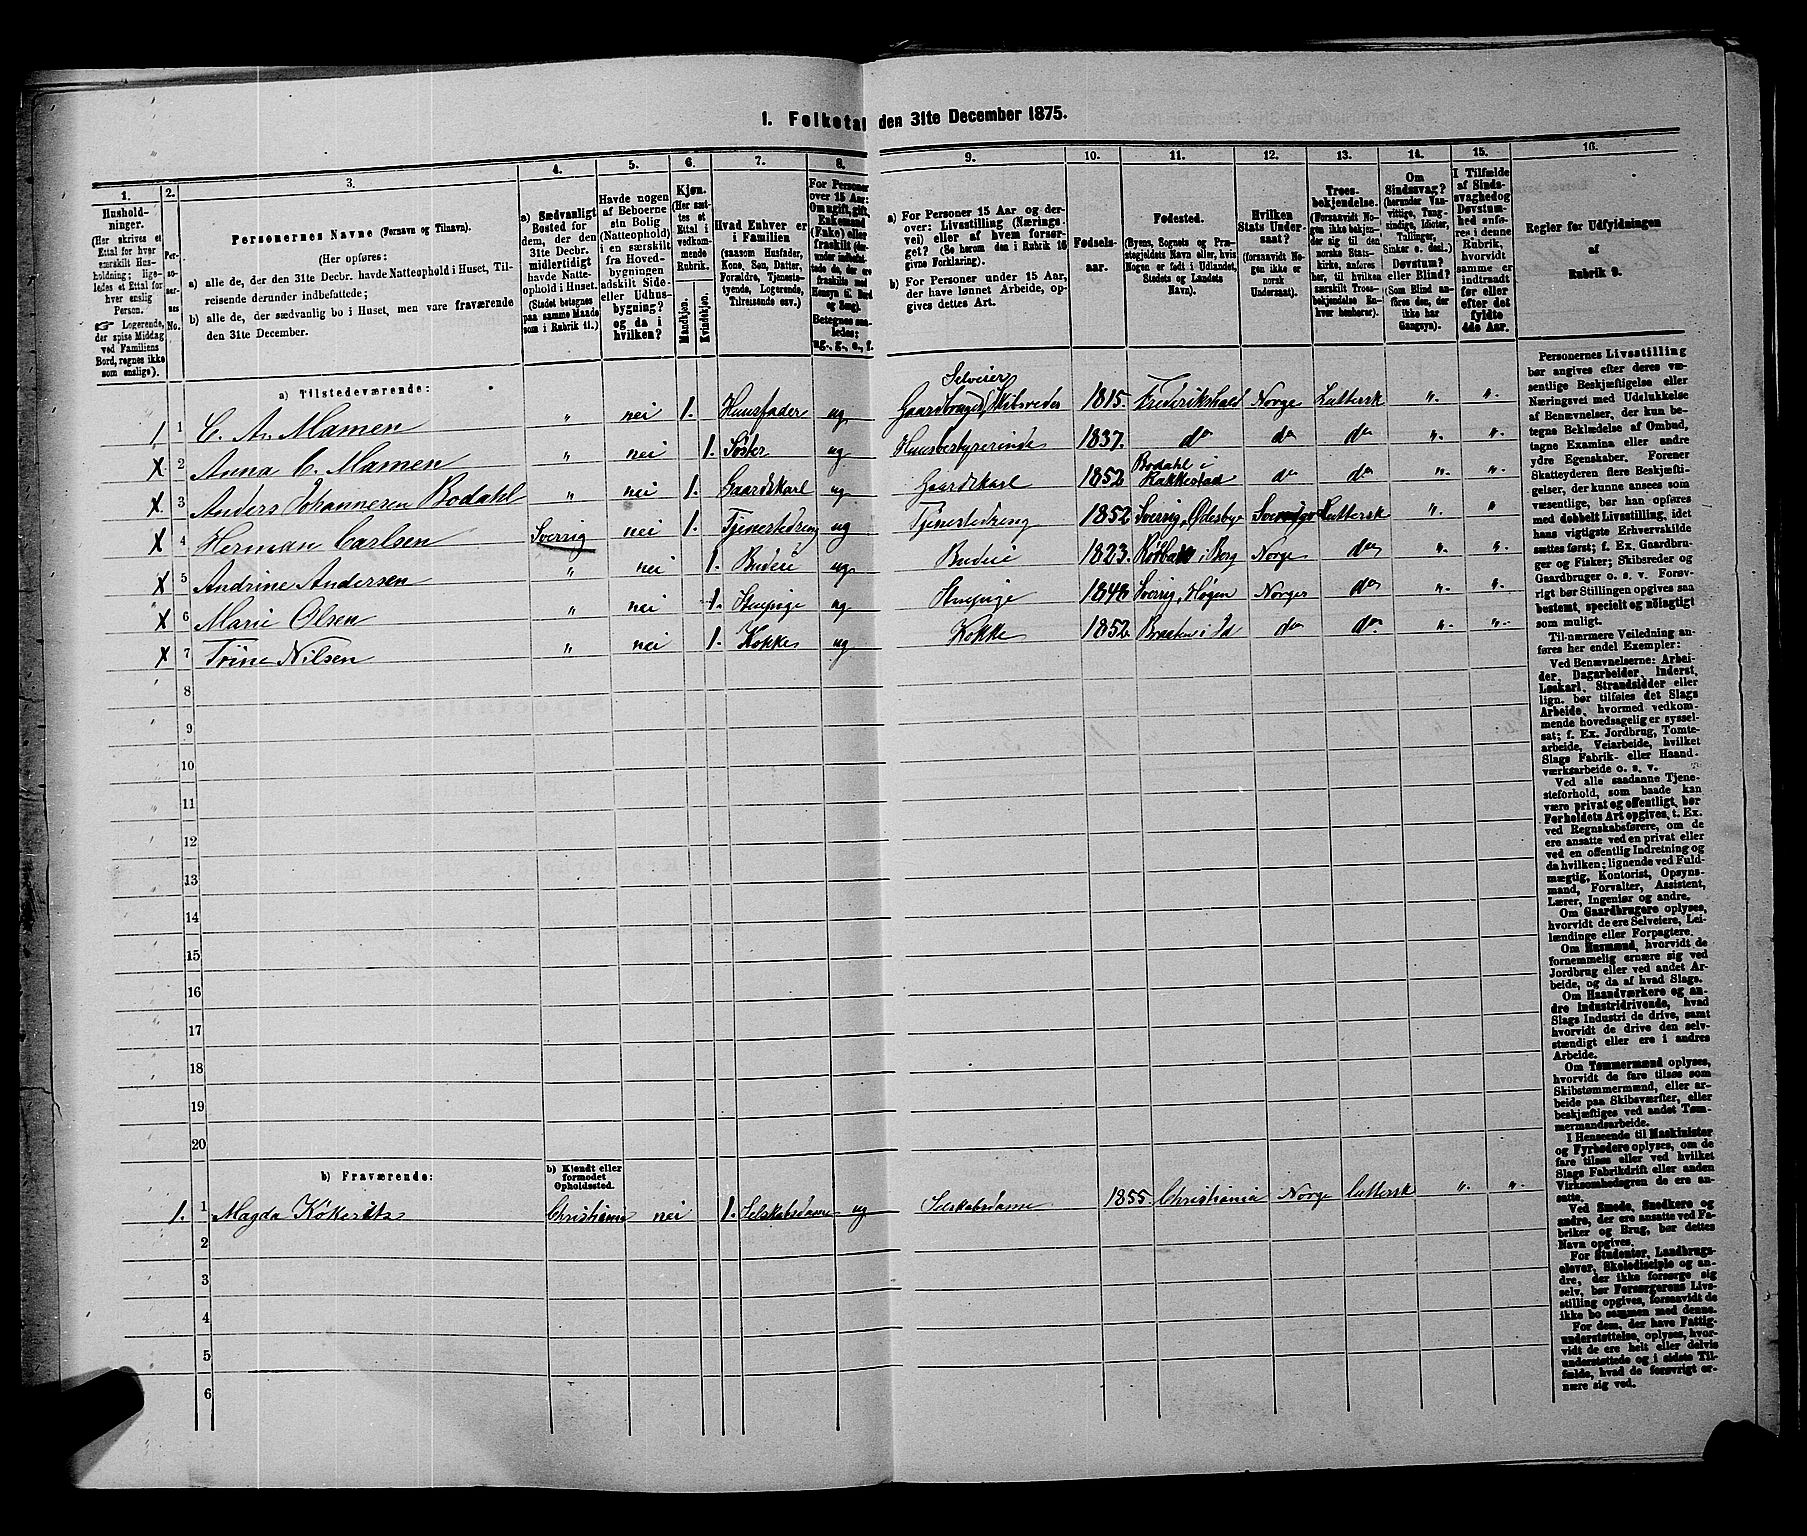 1. Folketal den 31te December 1875.
1. 2. 3. 4. 5. 6. 7. 8. 9. 10. 11. 12. 13. 14. 15. 16.
Hushold-
ninger.
(Her skrives et
Ettal for hver
særskilt Hus-
holdning; lige-
ledes et Ettal
for hver
enslig
Person.
☞ Logerende,
der spise Middag
ved Familiens
Bord, regnes ikke
som enslige).
Per-
so-
ner-
nes
No.
Personernes Navne (Fornavn og Tilnavn).
(Her opføres:
a) alle de, der den 31te Decbr. havde Natteophold i Huset, Til-
reisende derunder indbefattede;
b) alle de, der sædvanlig bo i Huset, men vare fraværende
den 31te December.
a) Sædvanligt
Bosted for
dem, der den
31te Decbr.
midlertidigt
havde Natte-
ophold i Huset.
(Stedet betegnes
paa samme Maade
som i Rubrik 11.)
Havde nogen
af Beboerne
sin Bolig
(Natteophold)
i en særskilt
fra Hoved-
bygningen
adskilt Side-
eller Udhus-
bygning?
og da i
hvilken?
Kjøn.
(Her sæt-
tes et
Ettal i
vedkom-
mende
Rubrik.
Mandkjøn.
Kvindekjøn.
Hvad Enhver er
i Familien
(saasom Husfader,
Kone, Søn, Datter,
Forældre, Tjenests-
tyende, Logerende,
Tilreisende osv.)
For Personer
over 15 Aar:
Om ugift, gift,
Enkemand
(Enke) eller
fraskilt
Betegnes saa-
ledes:
ug., g., e., f.
a) For Personer 15 Aar og der-
over: Livsstilling (Nærings-
vei) eller af hvem forsør-
get? (Se herom den i Rubrik 16
givne Forklaring).
b) For Personer under 15 Aar,
der have lønnet Arbeide, op-
gives dettes Art.
Fødsels-
aar.
Fødested.
(Byens, Sognets og Præ-
stegjeldets Navn eller, hvis
Nogen er født i Udlandet,
Stedets og Landets
Navn).
Hvilken
Stats Under-
saat?
(forsaavidt No-
gen ikke er
norsk
Undersaat).
Troes-
bekjendelse.
(Forsaavidt No-
gen ikke bekjen-
der sig til den
norske Stats-
kirke, anføres
her, til hvilken
særskilt Troes-
bekjendelse En-
hver henhører).
Om
Sindssvag?
(herunder Van-
vittige, Tung-
sindige, Idioter,
Tullinger,
Sinker o. desl.).
Døvstum?
eller Blind?
(Som Blind an-
føres den, der
ikke har
Gangsyn).
I Tilfælde
af Sinds-
svaghed og
Døvstum-
hed anfø-
res i denne
Rubrik,
hvorvidt
samme er
indtraadt
før eller
efter det
fyldte
4de Aar.
Regler for Udfyldningen
af
Rubrik 9.
a) Tilstedeværende:
1 1 C. A. Mamen " nei 1. Huusfader ug Selveier Gaardbruger, Skibsreder 1815. Frederikshald Norge Luthersk " "
x 2 Anna C. Mamen " nei 1. Søster ug Huusbestyrerinde 1837. do do do " "
x 3 Anders Johannesen Bodahl " nei 1. Gaardskarl ug Gaardskarl 1852 Bodahl i Rakkestad do do " "
x 4 Herman Carlsen Sverrig nei 1. Tjenestedreng ug Tjenestedreng 1852 Sverrig, Ødesbye Luthersk " "
x 5 Andrine Andersen " nei 1. Budeie ug Budeie 1823. i Berg Norge do " "
x 6 Marie Olsen " nei 1. Stuepige ug Stuepige Sverrig, Høgen Norge do " "
x 7 Trine Nilsen " nei 1. Kokke ug Kokke 1852. Braaten i Id do do " "
8
9
10
11
12
13
14
15
16
17
18
19
20
b) Fraværende:
b) Kjendt eller
formodet
Opholdssted.
1. 1 Magda Christiania nei 1. Selskabsdame ug Selskabsdame 1855. Christiania Norge Luthersk " "
2
3
4
5
6
Personernes Livsstilling
bør angives efter deres væ-
sentlige Beskjæftigelse eller
Næringsvei med Udelukkelse
af Benævnelser, der kun be-
tegne Beklædelse af Ombud,
tagne Examina eller andre
ydre Egenskaber. Forener
Skatteyderen flere Beskjæfti-
gelser, der kunne ansees som
væsentlige, bør han opføres
med dobbelt Livsstilling, idet
hans vigtigste Erhvervskilde
sættes først; f. Ex. Gaardbru-
ger og Fisker; Skibsreder og
Gaardbruger o. s. v. Forøv-
rigt bør Stillingen opgives saa
bestemt, specielt og nøiagtigt
som muligt.
Til nærmere Veiledning an-
føres her endel Exempler:
Ved Benævnelserne: Arbei-
der, Dagarbeider, Inderst,
Løskarl, Strandsidder eller
lign. bør tilføies det Slags
Arbeide, hvormed vedkom-
mende hovedsagelig er syssel-
sat; f. Ex. Jordbrug, Tomte-
arbeide, Veiarbeide, hvilket
Slags Fabrik- eller Haand-
værksarbeide o. s. v.
Ved alle saadanne Tjene-
steforhold, som baade kan
være privat og offentligt, bør
Forholdets Art opgives, t. Ex.
ved Regnskabsførere, om de
ere ansatte ved en privat eller
ved en offentlig Indretning og
da hvilken; lignende ved Fuld-
mægtig, Kontorist, Opsyns-
mand, Forvalter, Assistent,
Lærer, Ingeniør og andre.
Om Gaardbrugere oplyses,
hvorvidt de ere Selveiere, Lei-
lændinge eller Forpagtere.
Om Husmænd, hvorvidt de
fornemmelig ernære sig ved
Jordbrug eller ved andet Ar-
beide, og da af hvad Slags.
Om Haandværkere og an-
dre Industridrivende, hvad
Slags Industri de drive, samt
hvorvidt de drive den selv-
stændigt eller ere i andres
Arbeide.
Om Tømmermænd oplyses,
hvorvidt de fare tilsøs som
Skibstømmermænd, eller ar-
beide paa Skibsværfter, eller
beskjæftiges ved andet Tøm-
mermandsarbeide.
I Henseende til Maskinister
og Fyrbødere oplyses, om de
fare tilsøs eller ved hvilket
Slags Fabrikdrift eller anden
Virksomhedsgren de ere an-
satte.
Ved Smede, Snedkere og
andre, der ere ansatte ved Fa-
briker og Brug, bør dettes
Navn opgives.
For Studenter, Landbrugs-
elever, Skoledisciple og an-
dre, der ikke forsørge sig
selv, bør Forsørgerens Livs-
stilling opgives, forsaavidt de
ikke bo sammen med denne.
For dem, der have Fattig-
understøttelse, oplyses, hvor-
vidt de ere helt eller delvis
understøttede og i sidste Til-
fælde, hvad de forøvrigt er-
nære sig ved.